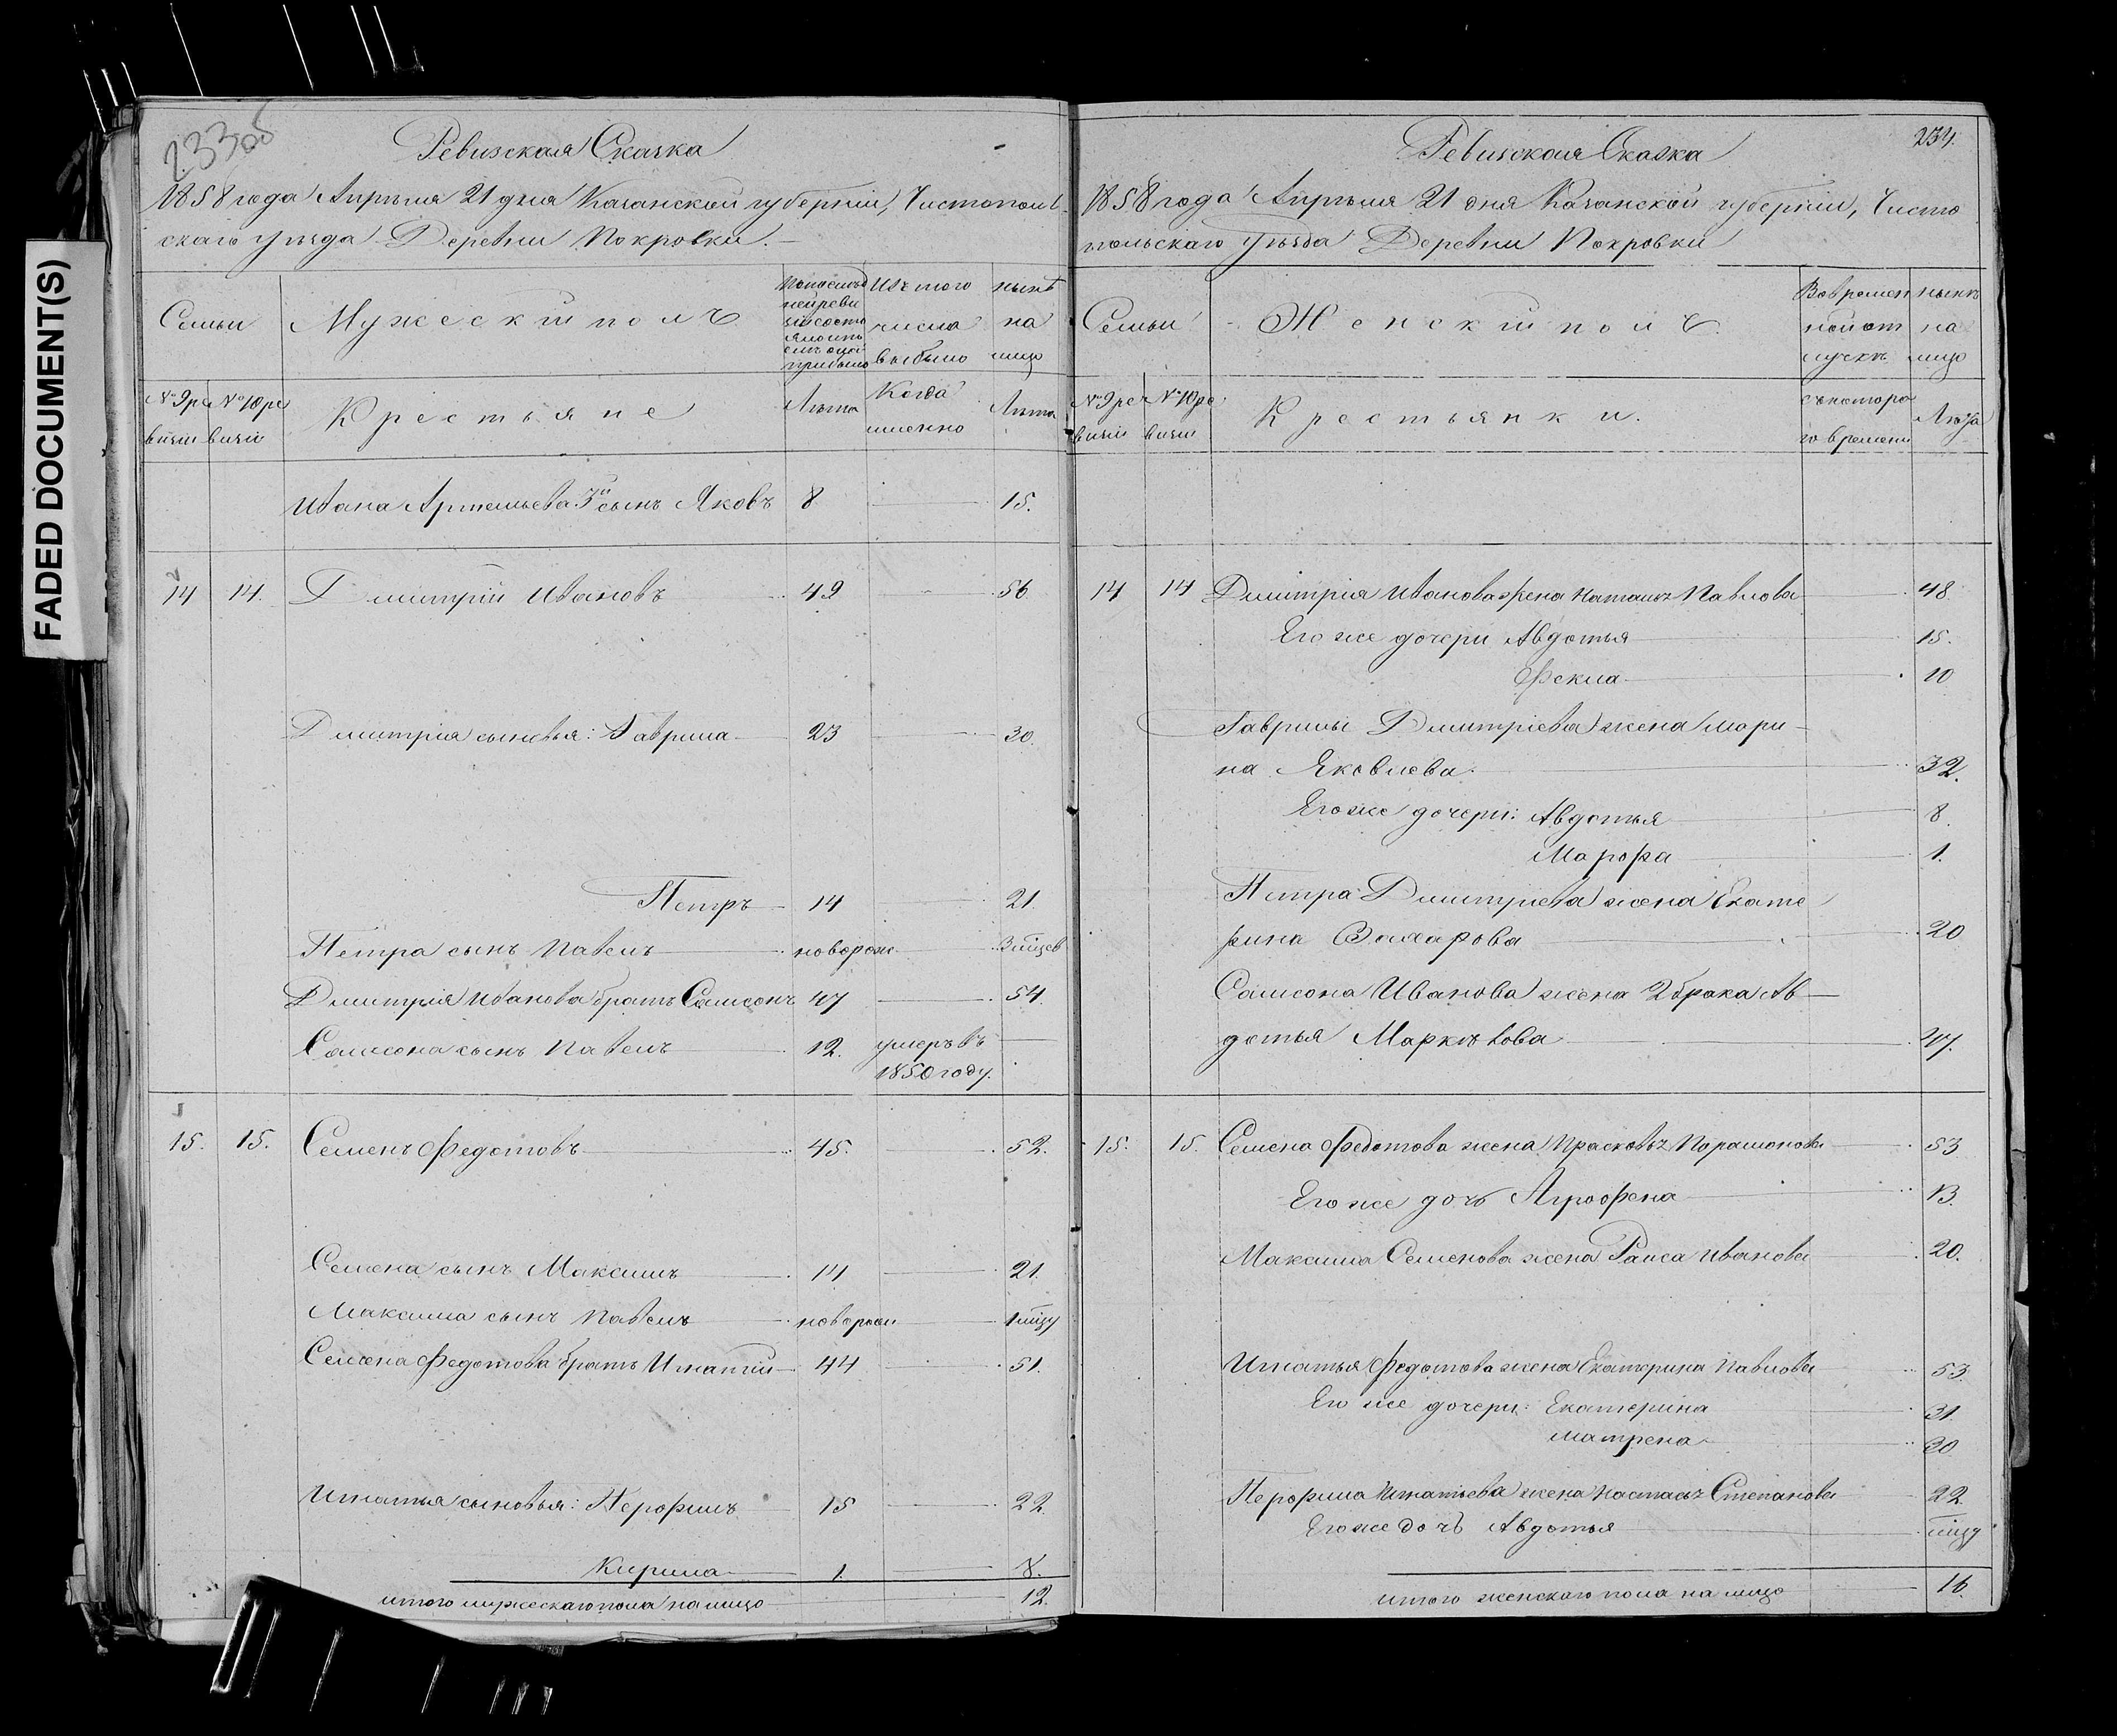 FADED DOCUMENT(S)
233об
Ревизская Сказка
1858 года Апрѣля 21 дня Казанской губерніи, Чистополь-
скаго уѣзда Деревни Покровки.
Семьи
Мужескій полъ
По послѣд
ней реви
зіи состо
яло и по
слѣ оной
прибыло
Изъ того
числа
выбыло
нынѣ
на
лицо
№ 9 ре
визіи
№ 10 ре
визіи
Крестьяне
Лѣта
Когда
именно
Лѣта
Ивана Артемьева 3й сынъ Яковъ 8 15.
14 14. Дмитрій Ивановъ 49 56
Дмитрія сыновья: Гаврила 23 30.
Петръ 14 21.
Петра сынъ Павелъ новорож 3 мѣсев
Дмитрія Иванова братъ Самсонъ 47 54.
Самсона сынъ Павелъ 12. умеръ въ
1850 году.
15. 15. Семенъ Федотовъ 45. 52.
Семена сынъ Максимъ 14 21.
Максима сынъ Павелъ новорож 1 мѣцу
Семена Федотова братъ Игнатій 44 51.
Игнатья сыновья: Перофилъ 15 22.
Кирила 1. 8.
итого мужескаго пола на лицо 12.
234.
Ревизская Сказка
1858 года Апрѣля 21 дня Казанской губерніи, Чисто
польскаго Уѣзда Деревни Покровки
Семьи
Женскій полъ.
Во времен
ной от
лучкѣ
нынѣ
на
лицо
№ 9 ре
визіи
№ 10 ре
визіи
Крестьянки.
съ которо
го времени
Лѣта
14 14 Дмитрія Иванова жена Наталья Павлова 48
Его же дочери Авдотья 15.
Фекла 10
Гаврилы Дмитріева жена Мари-
на Яковлева. 32.
Его же дочери: Авдотья 8.
Марфа 1.
Петра Дмитріева жена Екате
рина Захарова 20
Самсона Иванова жена 2 брака Ав-
дотья Маркѣлова 47.
15. 15. Семена Федотова жена Прасковья Парамонова 53
Его же дочь Аграфена 13.
Максима Семенова жена Раиса Иванова 20.
Игнатья Федотова жена Екатерина Павлова 53.
Его же дочери: Екатерина 31.
Матрена 30
Перофила Игнатьева жена Настасья Степанова 22.
Его же дочь Авдотья мѣцу
итого женскаго пола на лицо 16.